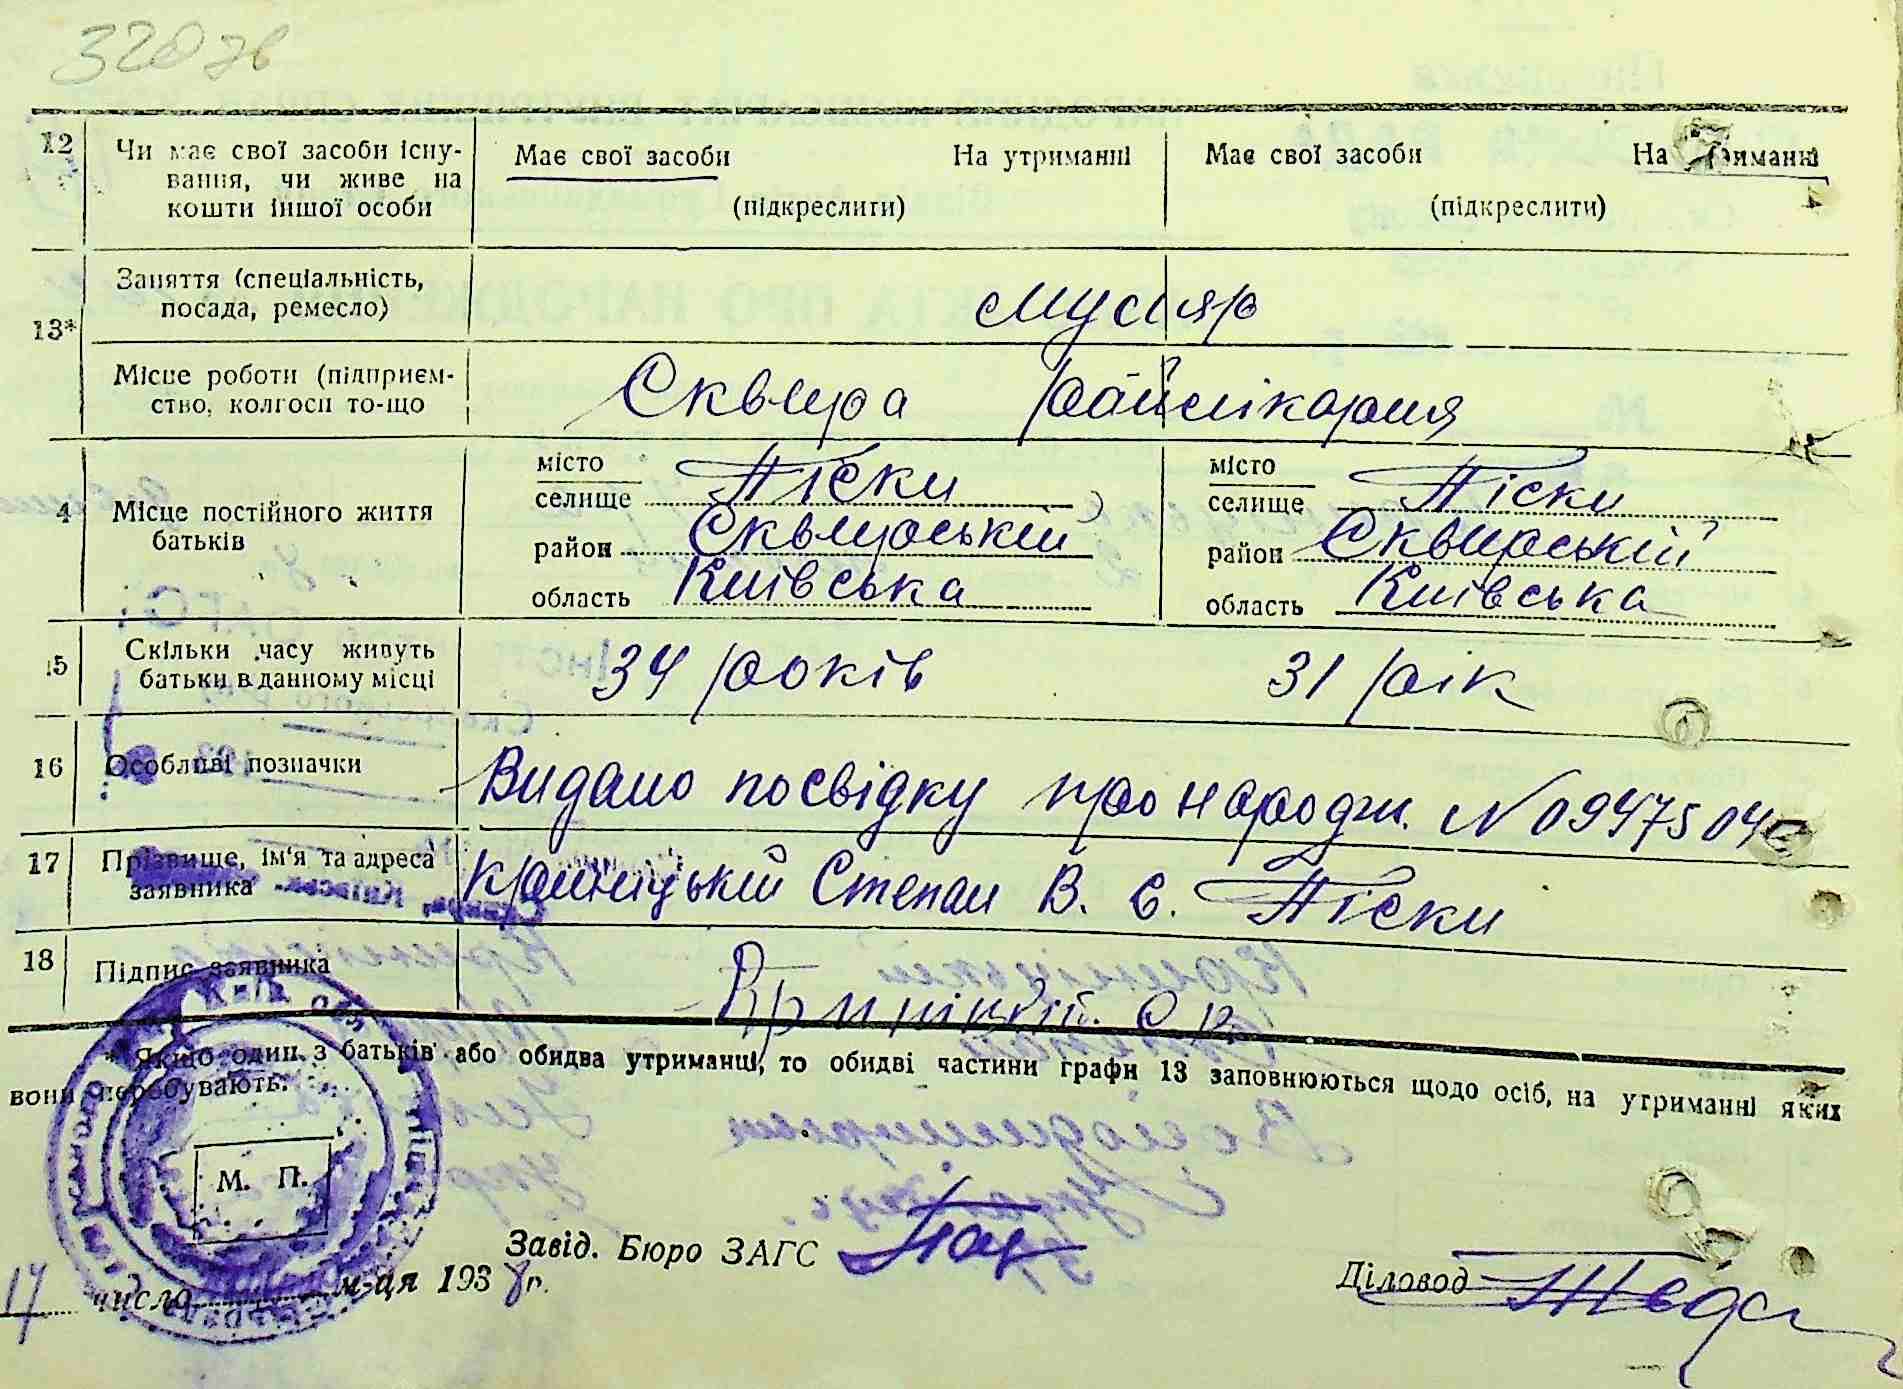 320 зв
12 Чи має свої засоби існу-
вання, чи живе на
кошти іншої особи
Має свої засоби На утриманні
(підкреслити)
Має свої засоби На утриманні
(підкреслити)
13* Заняття (спеціальність,
посада, ремесло)
муляр
Місце роботи (підприєм-
ство, колгосп то-що
Сквира райлікарня
4 Місце постійного життя
батьків
місто
селище Піски
район Сквирський
область Київська
місто
селище Піски
район Сквирський
область Київська
15 Скільки часу живуть
батьки в данному місці
34 років 31 рік
16 Особливі позначки
Видано посвідку про народж. №094750
17 Прізвище, ім'я та адреса
заявника
Криницький Степан В. с. Піски
18 Підпис заявника
* Якщо один з батьків або обидва утриманці, то обидві частини графи 13 заповнюються щодо осіб, на утриманні яких
вони перебувають.
М. П.
Завід. Бюро ЗАГС
17 число м-ця 1938 р.
Діловод